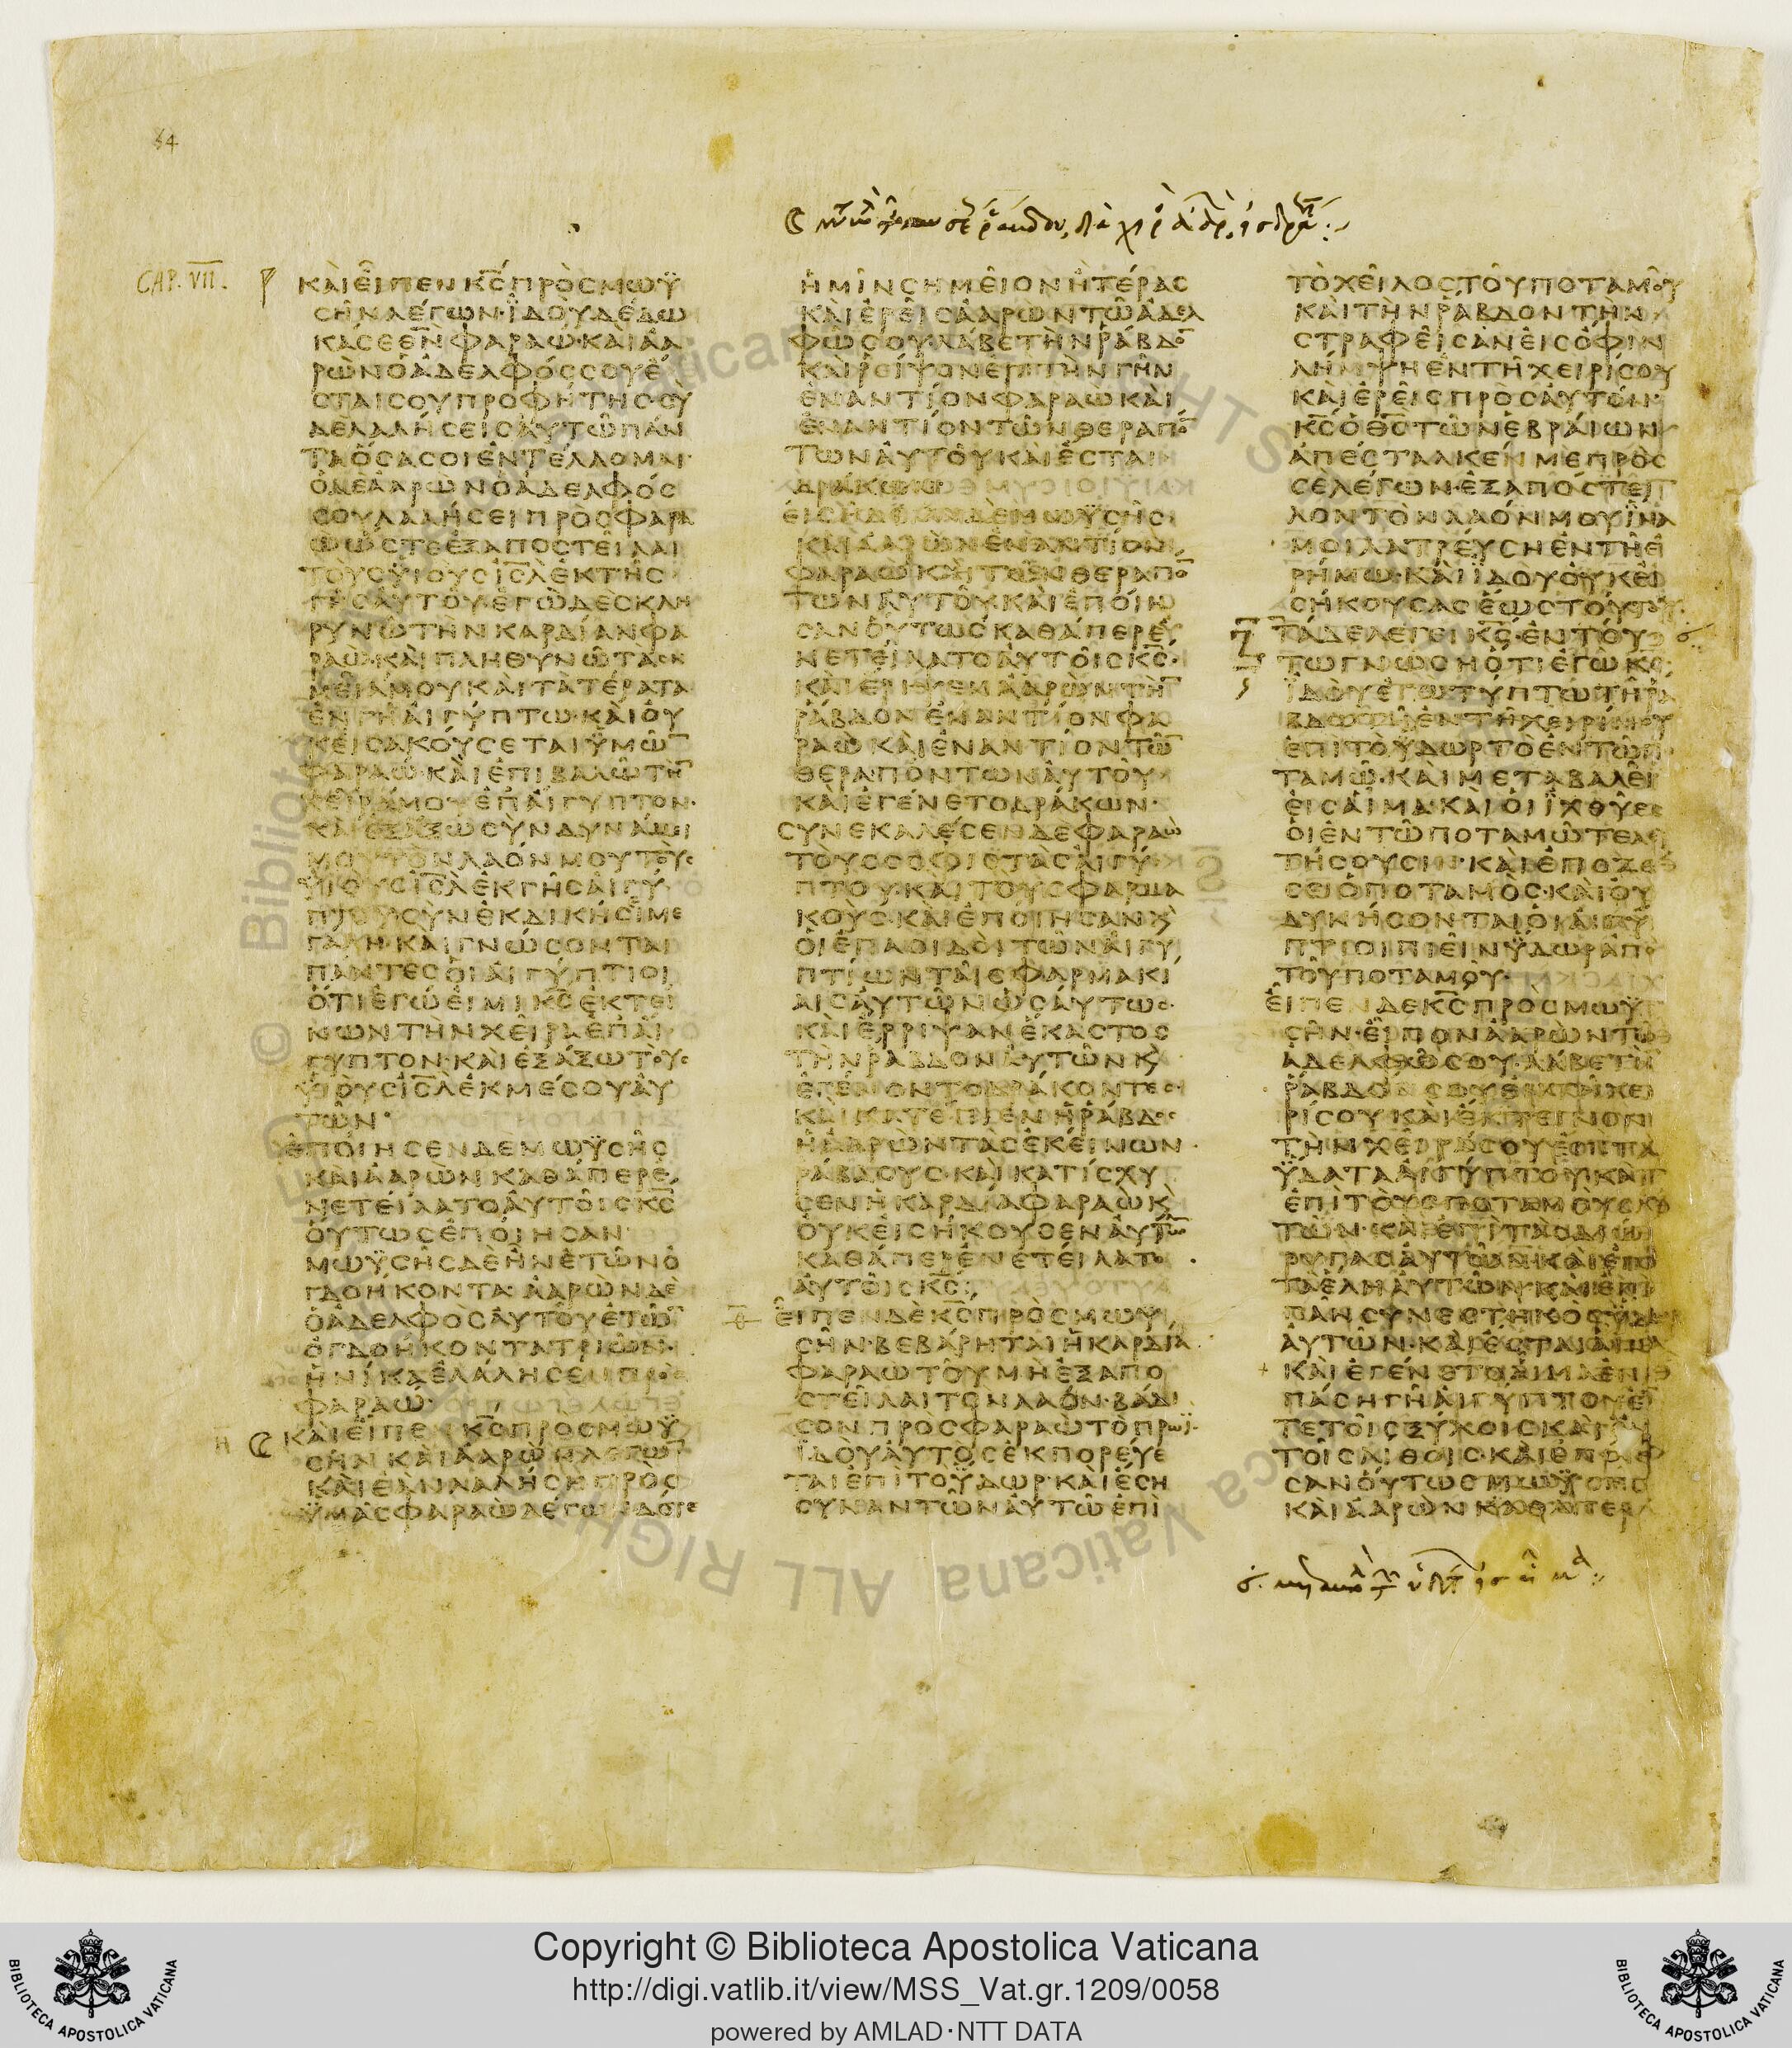 54
CAP. VII.
ΚΑΙ ΕΙΠΕΝ Κ̅Σ̅ ΠΡΟΣ ΜΩΥ
ΣΗΝ ΛΕΓΩΝ· ΙΔΟΥ ΔΕΔΩ
ΚΑ ΣΕ Θ̅Ν̅ ΦΑΡΑΩ· ΚΑΙ ΑΑ
ΡΩΝ Ο ΑΔΕΛΦΟΣ ΣΟΥ Ε
ΣΤΑΙ ΣΟΥ ΠΡΟΦΗΤΗΣ ΣΥ
ΔΕ ΛΑΛΗΣΕΙΣ ΑΥΤΩ ΠΑΝ
ΤΑ ΟΣΑ ΣΟΙ ΕΝΤΕΛΛΟΜΑΙ·
Ο ΔΕ ΑΑΡΩΝ Ο ΑΔΕΛΦΟΣ
ΣΟΥ ΛΑΛΗΣΕΙ ΠΡΟΣ ΦΑΡΑ
Ω ΩΣΤΕ ΕΞΑΠΟΣΤΕΙΛΑΙ
ΤΟΥΣ ΥΙΟΥΣ Ι̅Σ̅Λ̅ ΕΚ ΤΗΣ
ΓΗΣ ΑΥΤΟΥ· ΕΓΩ ΔΕ ΣΚΛΗ
ΡΥΝΩ ΤΗΝ ΚΑΡΔΙΑΝ ΦΑ
ΡΑΩ· ΚΑΙ ΠΛΗΘΥΝΩ ΤΑ Σ
ΜΕΙΑ ΜΟΥ ΚΑΙ ΤΑ ΤΕΡΑΤΑ
ΕΝ ΓΗ ΑΙΓΥΠΤΩ· ΚΑΙ ΟΥ
Κ ΕΙΣΑΚΟΥΣΕΤΑΙ ΥΜΩ̅
ΦΑΡΑΩ· ΚΑΙ ΕΠΙΒΑΛΩ ΤΗ̅
ΧΕΙΡΑ ΜΟΥ ΕΠ ΑΙΓΥΠΤΟΝ·
ΚΑΙ ΕΞΑΞΩ ΣΥΝ ΔΥΝΑΜΙ
ΜΟΥ ΤΟΝ ΛΑΟΝ ΜΟΥ ΤΟΥΣ
ΥΙΟΥΣ Ι̅Σ̅Λ̅ ΕΚ ΓΗΣ ΑΙΓΥ
ΠΤΟΥ ΣΥΝ ΕΚΔΙΚΗΣΙ ΜΕ
ΓΑΛΗ· ΚΑΙ ΓΝΩΣΟΝΤΑΙ
ΠΑΝΤΕΣ ΟΙ ΑΙΓΥΠΤΙΟΙ
ΟΤΙ ΕΓΩ ΕΙΜΙ Κ̅Σ̅ ΕΚΤΕΙ
ΝΩΝ ΤΗΝ ΧΕΙΡΑ ΕΠ ΑΙ
ΓΥΠΤΟΝ· ΚΑΙ ΕΞΑΞΩ ΤΟΥΣ
ΥΙΟΥΣ Ι̅Σ̅Λ̅ ΕΚ ΜΕΣΟΥ ΑΥ
ΤΩΝ·
ΕΠΟΙΗΣΕΝ ΔΕ ΜΩΥΣΗΣ
ΚΑΙ ΑΑΡΩΝ ΚΑΘΑΠΕΡ Ε
ΝΕΤΕΙΛΑΤΟ ΑΥΤΟΙΣ Κ̅Σ̅
ΟΥΤΩΣ ΕΠΟΙΗΣΑΝ·
ΜΩΥΣΗΣ ΔΕ ΗΝ ΕΤΩΝ Ο
ΓΔΟΗΚΟΝΤΑ· ΑΑΡΩΝ ΔΕ
Ο ΑΔΕΛΦΟΣ ΑΥΤΟΥ ΕΤΩ̅
ΟΓΔΟΗΚΟΝΤΑ ΤΡΙΩΝ·
ΗΝΙΚΑ ΕΛΑΛΗΣΕΝ ΠΡΟΣ
ΦΑΡΑΩ·
ΚΑΙ ΕΙΠΕΝ Κ̅Σ̅ ΠΡΟΣ ΜΩΥ
ΣΗΝ ΚΑΙ ΑΑΡΩΝ ΛΕΓΩ̅
ΚΑΙ ΕΑΝ ΛΑΛΗΣΗ ΠΡΟΣ
ΥΜΑΣ ΦΑΡΑΩ ΛΕΓΩΝ ΔΟΤΕ
ΗΜΙΝ ΣΗΜΕΙΟΝ Η ΤΕΡΑΣ
ΚΑΙ ΕΡΕΙΣ ΑΑΡΩΝ ΤΩ ΑΔΕΛ
ΦΩ ΣΟΥ ΛΑΒΕ ΤΗΝ ΡΑΒΔΟ̅
ΚΑΙ ΡΕΙΨΟΝ ΕΠΙ ΤΗΝ ΓΗΝ
ΕΝΑΝΤΙΟΝ ΦΑΡΑΩ ΚΑΙ
ΕΝΑΝΤΙΟΝ ΤΩΝ ΘΕΡΑΠΟ̅
ΤΩΝ ΑΥΤΟΥ ΚΑΙ ΕΣΤΑΙ
ΔΡΑΚΩΝ
ΕΙΣΗΛΘΕΝ ΔΕ ΜΩΥΣΗΣ
ΚΑΙ ΑΑΡΩΝ ΕΝΑΝΤΙΟΝ
ΦΑΡΑΩ ΚΑΙ ΤΩΝ ΘΕΡΑΠΟ̅
ΤΩΝ ΑΥΤΟΥ· ΚΑΙ ΕΠΟΙΗ
ΣΑΝ ΟΥΤΩΣ ΚΑΘΑΠΕΡ Ε
ΝΕΤΕΙΛΑΤΟ ΑΥΤΟΙΣ Κ̅Σ̅·
ΚΑΙ ΕΡΙΨΕΝ ΑΑΡΩΝ ΤΗ̅
ΡΑΒΔΟΝ ΕΝΑΝΤΙΟΝ ΦΑ
ΡΑΩ ΚΑΙ ΕΝΑΝΤΙΟΝ ΤΩ̅
ΘΕΡΑΠΟΝΤΩΝ ΑΥΤΟΥ
ΚΑΙ ΕΓΕΝΕΤΟ ΔΡΑΚΩΝ·
ΣΥΝΕΚΑΛΕΣΕΝ ΔΕ ΦΑΡΑΩ
ΤΟΥΣ ΣΟΦΙΣΤΑΣ ΑΙΓΥ
ΠΤΟΥ· ΚΑΙ ΤΟΥΣ ΦΑΡΜΑ
ΚΟΥΣ· ΚΑΙ ΕΠΟΙΗΣΑΝ Κ
ΟΙ ΕΠΑΟΙΔΟΙ ΤΩΝ ΑΙΓΥ
ΠΤΙΩΝ ΤΑΙΣ ΦΑΡΜΑΚΙ
ΑΙΣ ΑΥΤΩΝ ΩΣΑΥΤΩΣ·
ΚΑΙ ΕΡΡΙΨΑΝ ΕΚΑΣΤΟΣ
ΤΗΝ ΡΑΒΔΟΝ ΑΥΤΩΝ Κ
ΕΓΕΝΟΝΤΟ ΔΡΑΚΟΝΤΕΣ
ΚΑΙ ΚΑΤΕΠΙΕΝ Η ΡΑΒΔΟΣ
Η ΑΑΡΩΝ ΤΑΣ ΕΚΕΙΝΩΝ
ΡΑΒΔΟΥΣ· ΚΑΙ ΚΑΤΙΣΧΥ
ΣΕΝ Η ΚΑΡΔΙΑ ΦΑΡΑΩ Κ
ΟΥΚ ΕΙΣΗΚΟΥΣΕΝ ΑΥΤΩ̅
ΚΑΘΑΠΕΡ ΕΝΕΤΕΙΛΑΤΟ
ΑΥΤΟΙΣ Κ̅Σ̅:
ΕΙΠΕΝ ΔΕ Κ̅Σ̅ ΠΡΟΣ ΜΩΥ
ΣΗΝ· ΒΕΒΑΡΗΤΑΙ Η ΚΑΡΔΙΑ
ΦΑΡΑΩ ΤΟΥ ΜΗ ΕΞΑΠΟ
ΣΤΕΙΛΑΙ ΤΟΝ ΛΑΟΝ· ΒΑΔΙ
ΣΟΝ ΠΡΟΣ ΦΑΡΑΩ ΤΟ ΠΡΩΙ·
ΙΔΟΥ ΑΥΤΟΣ ΕΚΠΟΡΕΥΕ
ΤΑΙ ΕΠΙ ΤΟ ΥΔΩΡ· ΚΑΙ ΕΣΗ
ΣΥΝΑΝΤΩΝ ΑΥΤΩ ΕΠΙ
ΤΟ ΧΕΙΛΟΣ ΤΟΥ ΠΟΤΑΜΟΥ
ΚΑΙ ΤΗΝ ΡΑΒΔΟΝ ΤΗΝ
ΣΤΡΑΦΕΙΣΑΝ ΕΙΣ ΟΦΙΝ
ΛΗΜΨΗ ΕΝ ΤΗ ΧΕΙΡΙ ΣΟΥ
ΚΑΙ ΕΡΕΙΣ ΠΡΟΣ ΑΥΤΟΝ·
Κ̅Σ̅ Ο Θ̅Σ̅ ΤΩΝ ΕΒΡΑΙΩΝ
ΑΠΕΣΤΑΛΚΕΝ ΜΕ ΠΡΟΣ
ΣΕ ΛΕΓΩΝ· ΕΞΑΠΟΣΤΕΙ
ΛΟΝ ΤΟΝ ΛΑΟΝ ΜΟΥ ΙΝΑ
ΜΟΙ ΛΑΤΡΕΥΣΗ ΕΝ ΤΗ Ε
ΡΗΜΩ· ΚΑΙ ΙΔΟΥ ΟΥΚ ΕΙ
ΣΗΚΟΥΣΑΣ ΕΩΣ ΤΟΥΤΟΥ·
ΤΑΔΕ ΛΕΓΕΙ Κ̅Σ̅· ΕΝ ΤΟΥ
ΤΩ ΓΝΩΣΗ ΟΤΙ ΕΓΩ Κ̅Σ̅·
ΙΔΟΥ ΕΓΩ ΤΥΠΤΩ ΤΗ ΡΑ
ΒΔΩ ΤΗ ΕΝ ΤΗ ΧΕΙΡΙ ΜΟΥ
ΕΠΙ ΤΟ ΥΔΩΡ ΤΟ ΕΝ ΤΩ ΠΟ
ΤΑΜΩ· ΚΑΙ ΜΕΤΑΒΑΛΕΙ
ΕΙΣ ΑΙΜΑ· ΚΑΙ ΟΙ ΙΧΘΥΕΣ
ΟΙ ΕΝ ΤΩ ΠΟΤΑΜΩ ΤΕΛΕΥ
ΤΗΣΟΥΣΙΝ· ΚΑΙ ΕΠΟΖΕ
ΣΕΙ Ο ΠΟΤΑΜΟΣ· ΚΑΙ ΟΥ
ΔΥΝΗΣΟΝΤΑΙ ΟΙ ΑΙΓΥ
ΠΤΙΟΙ ΠΙΕΙΝ ΥΔΩΡ ΑΠΟ
ΤΟΥ ΠΟΤΑΜΟΥ·
ΕΙΠΕΝ ΔΕ Κ̅Σ̅ ΠΡΟΣ ΜΩΥ
ΣΗΝ· ΕΙΠΟΝ ΑΑΡΩΝ ΤΩ
ΑΔΕΛΦΩ ΣΟΥ· ΛΑΒΕ ΤΗ̅
ΡΑΒΔΟΝ ΣΟΥ ΕΝ ΤΗ ΧΕΙ
ΡΙ ΣΟΥ ΚΑΙ ΕΚΤΕΙΝΟΝ
ΤΗΝ ΧΕΙΡΑ ΣΟΥ ΕΠΙ ΤΑ
ΥΔΑΤΑ ΑΙΓΥΠΤΟΥ· ΚΑΙ
ΕΠΙ ΤΟΥΣ ΠΟΤΑΜΟΥΣ ΑΥ
ΤΩΝ· ΚΑΙ ΕΠΙ ΤΑΣ ΔΙΩ
ΡΥΓΑΣ ΑΥΤΩΝ ΚΑΙ ΕΠΙ
ΤΑ ΕΛΗ ΑΥΤΩΝ ΚΑΙ ΕΠΙ
ΠΑΝ ΣΥΝΕΣΤΗΚΟΣ ΥΔΩΡ
ΑΥΤΩΝ· ΚΑΙ ΕΣΤΑΙ ΑΙΜΑ
ΚΑΙ ΕΓΕΝΕΤΟ ΑΙΜΑ ΕΝ
ΠΑΣΗ ΓΗ ΑΙΓΥΠΤΟΥ Ε̅
ΤΕ ΤΟΙΣ ΞΥΛΟΙΣ ΚΑΙ ΕΝ
ΤΟΙΣ ΛΙΘΟΙΣ· ΚΑΙ ΕΠΟΙΗ
ΣΑΝ ΟΥΤΩΣ ΜΩΥΣΗΣ
ΚΑΙ ΑΑΡΩΝ ΚΑΘΑΠΕΡ
Copyright © Biblioteca Apostolica Vaticana
http://digi.vatlib.it/view/MSS_Vat.gr.1209/0058
powered by AMLAD·NTT DATA
BIBLIOTECA APOSTOLICA VATICANA
BIBLIOTECA APOSTOLICA VATICANA